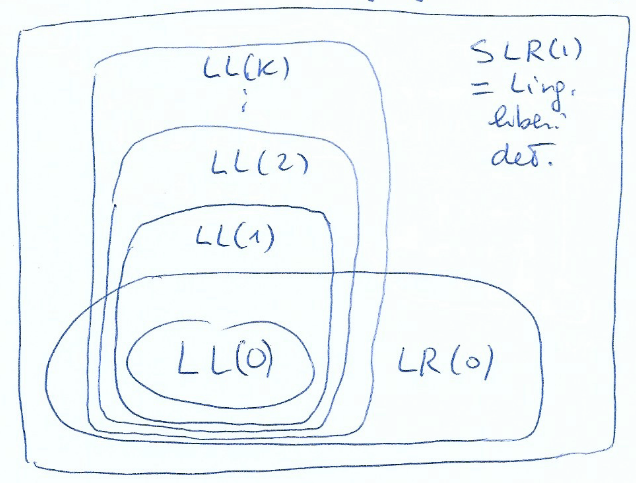 SLR(1)
= Ling.
liberi
det.
LL(K)
⋮
LL(2)
LL(1)
LL(0)
LR(0)